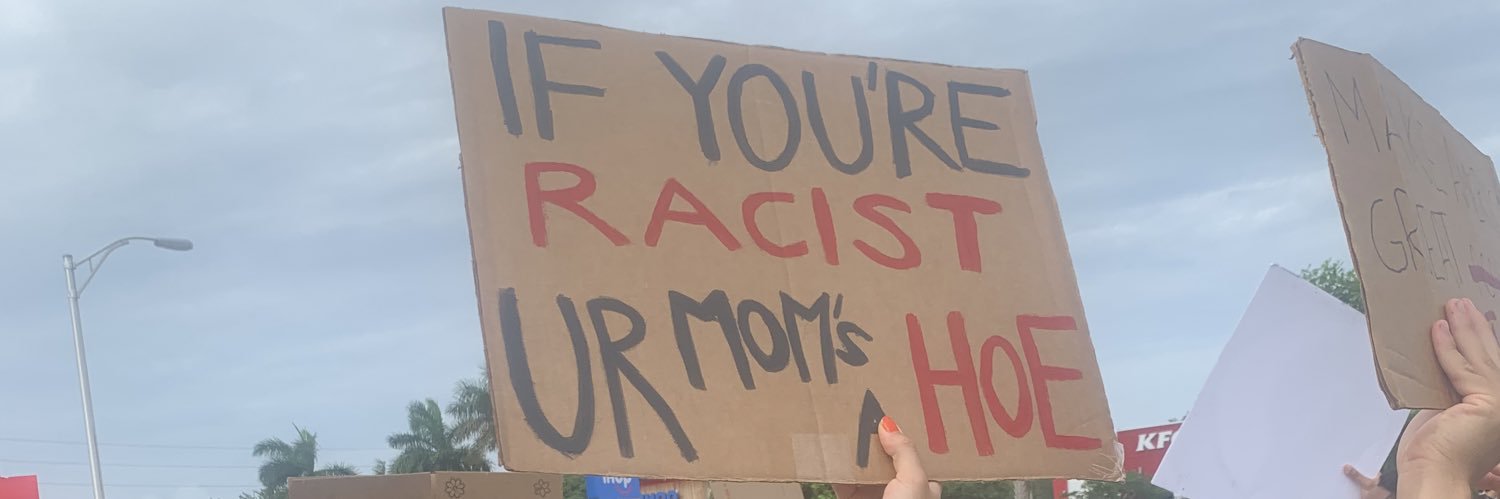 IF YOU'RE
RACIST
UR MOM'S A HOE
MAKE
GREAT
KFC
IHOP